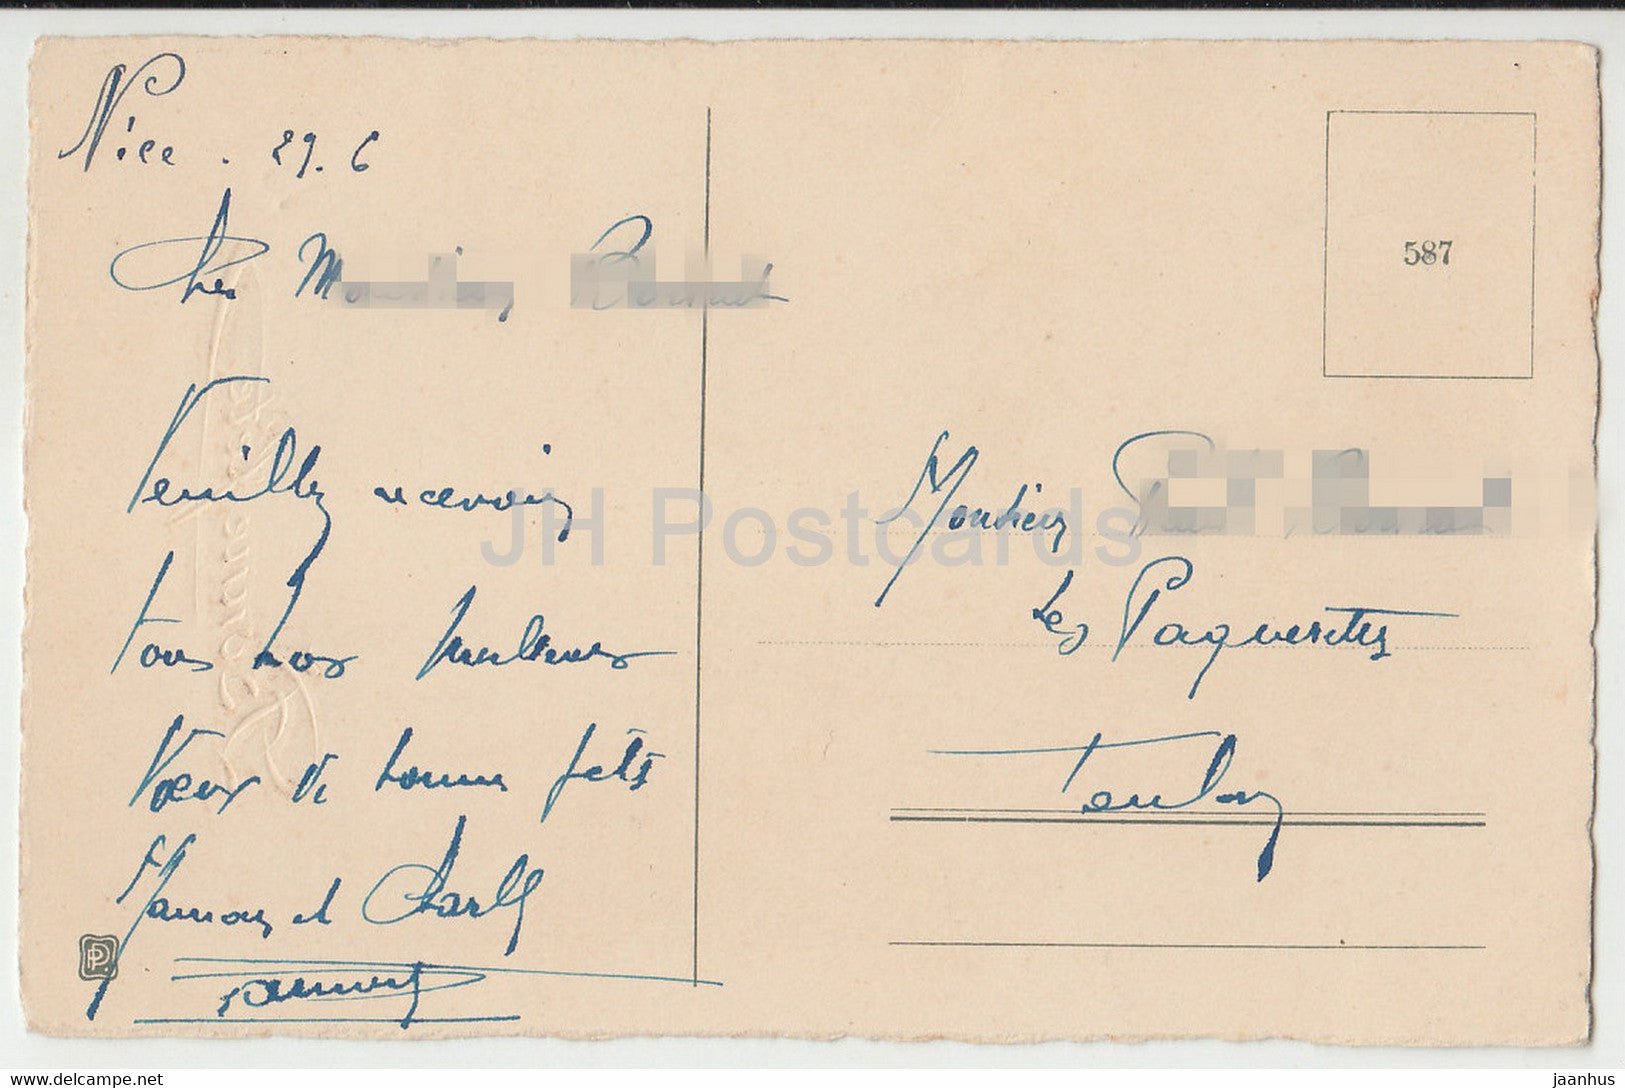 Nice. 29.6
Cher M
Veuillez recevoir
tous nos meilleurs
Voeux de bonnes fêtes
Maman et Charles
587
Monsieur
Les Paquerettes
Toulon
PD
Bonne Fête
JH Postcards
delcampe.net
jaanhus